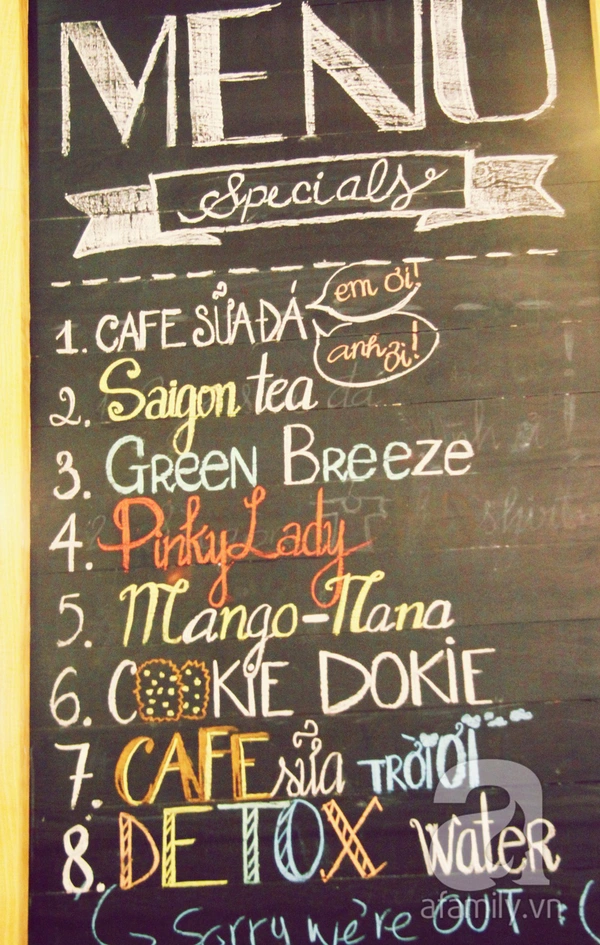 MENU
Specials
em ơi!
1. CAFE SỮA ĐÁ
anh ơi!
2. Saigon tea
3. GREEN BREEZE
4. Pinky Lady
5. Mango-Nana
6. COOKIE DOKIE
7. CAFE sữa TRỜI ƠI
8. DETOX water
a
afamily.vn
Sorry we're OUT :(